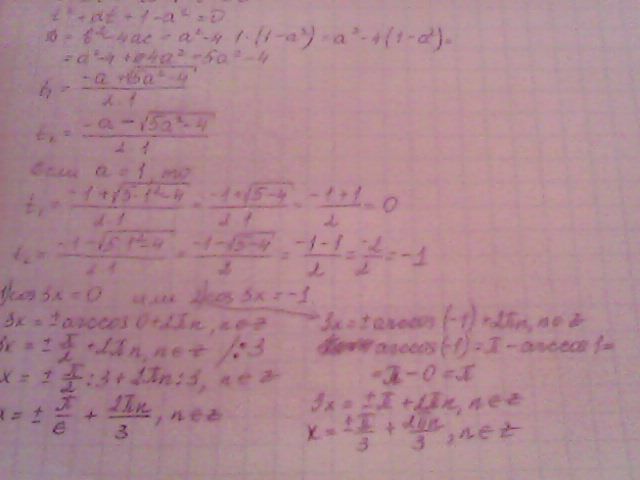 t² + at + 1 - a² = 0
D = b² - 4ac = a² - 4·1·(1-a²) = a² - 4(1-a²) =
= a² - 4 + 4a² = 5a² - 4
t₁ = (-a + √(5a² - 4)) / (2·1)
t₂ = (-a - √(5a² - 4)) / (2·1)
если a = 1, то
t₁ = (-1 + √(5·1² - 4)) / (2·1) = (-1 + √(5-4)) / (2·1) = (-1+1)/2 = 0
t₂ = (-1 - √(5·1² - 4)) / (2·1) = (-1 - √(5-4)) / 2 = (-1-1)/2 = -2/2 = -1
1) cos 3x = 0 или 2) cos 3x = -1
3x = ± arccos 0 + 2πn, n∈z
3x = ± π/2 + 2πn, n∈z /:3
x = ± π/2 : 3 + 2πn : 3, n∈z
x = ± π/6 + 2πn/3, n∈z
3x = ± arccos(-1) + 2πn, n∈z
arccos(-1) = π - arccos 1 =
= π - 0 = π
3x = ± π + 2πn, n∈z
x = ±π/3 + 2πn/3, n∈z